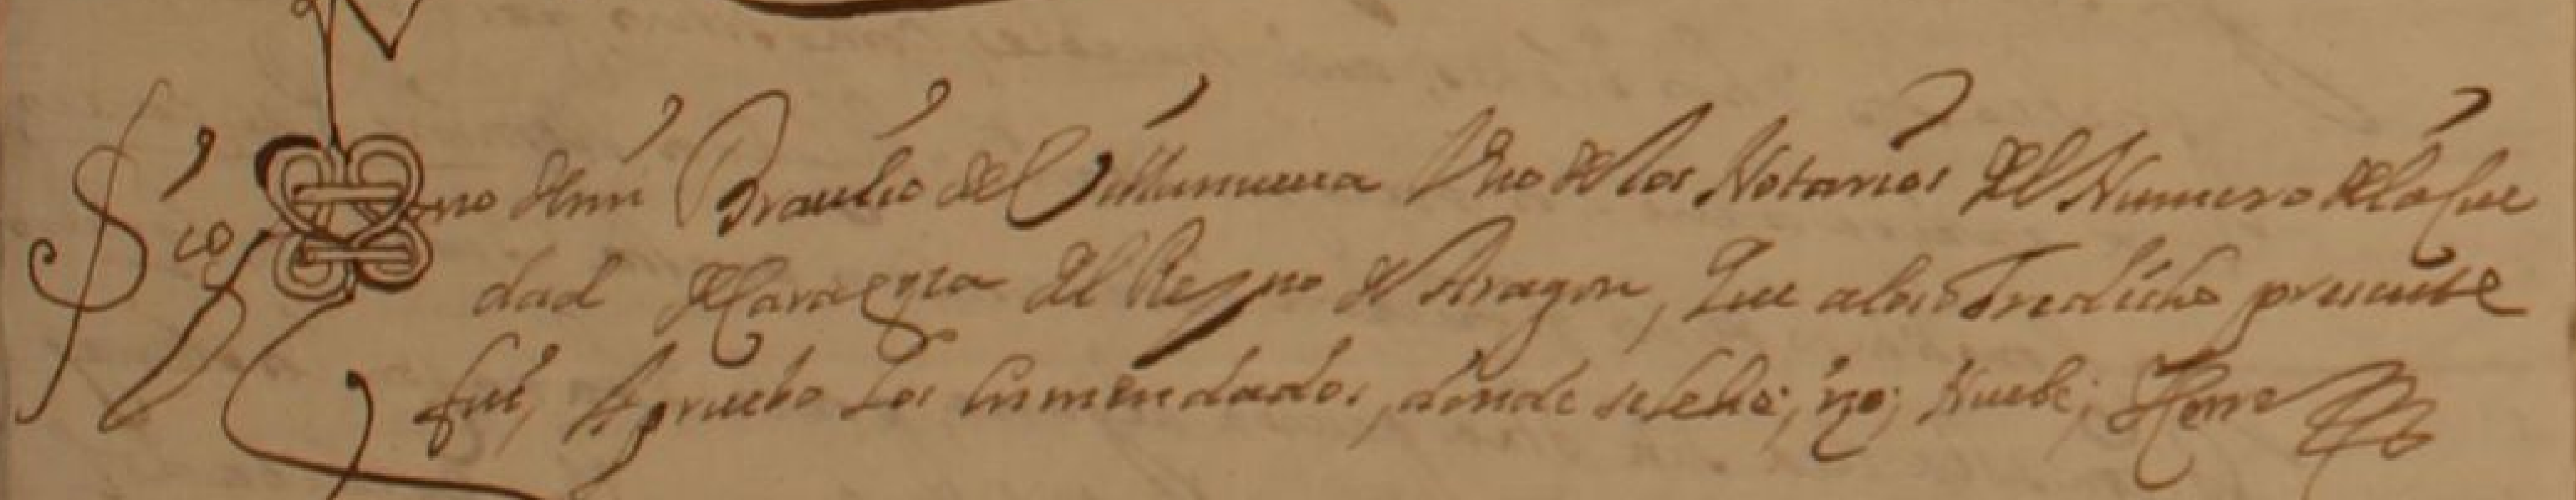 Sig no de mi Braulio de Villanueua Vno de los Notarios del Numero de la Ciu
dad de Caragoza del Reyno de Aragon, que a lo sobredicho presente
fui, Apruebo los enmendados, donde se lehe; no; Nuebe; Et cerre